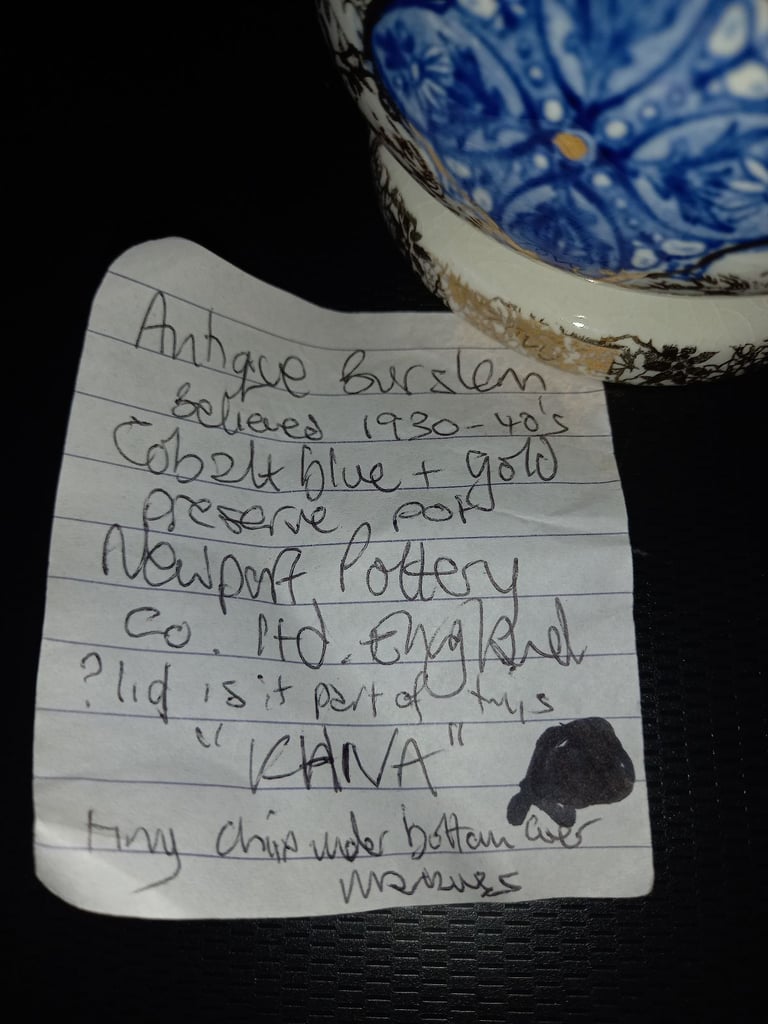 Antique Burslem
Believed 1930-40's
Cobalt blue + gold
preserve pot
Newport Pottery
Co. Ltd. England
? lid is it part of this
"KANA"
tiny chip under bottom over